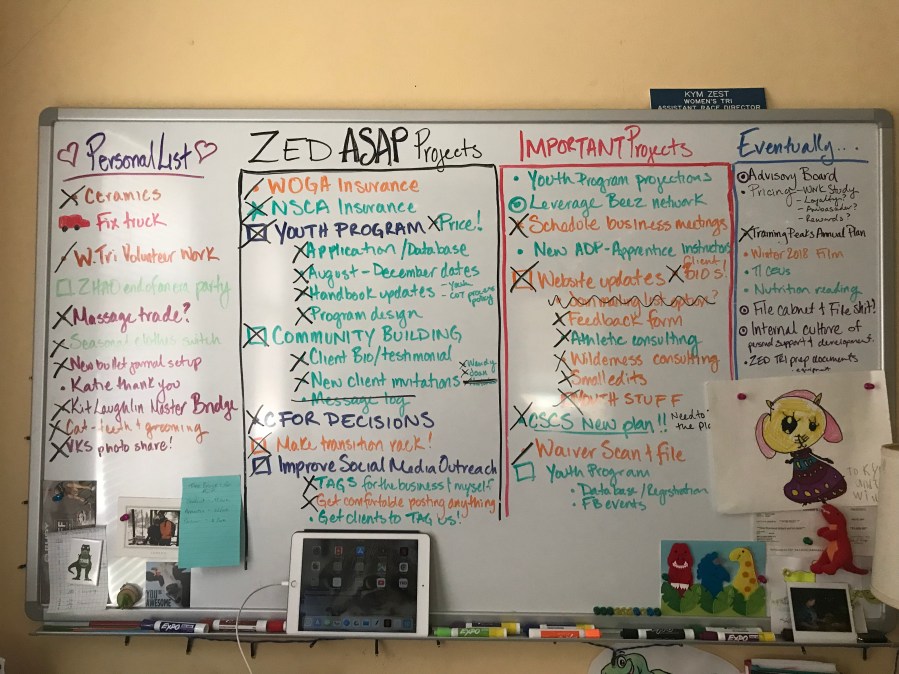 KYM ZEST
WOMEN'S TRI
ASSISTANT RACE DIRECTOR
Personal List
Ceramics
Fix truck
W.Tri Volunteer Work
end of an era party
Massage trade?
Seasonal clothes switch
New bullet journal setup
Katie thank you
Kit Laughlin Master Bridge
Cat-teeth + grooming
VKS photo share!
YOU'RE
AWESOME
ZED ASAP Projects
WOGA Insurance
NSCA Insurance
YOUTH PROGRAM Price!
Application/Database
August-December dates
Handbook updates - Youth
- COT process
policy
Program design
COMMUNITY BUILDING
Client Bio/testimonial
New client invitations
Wendy
Joan
Message log
CFOR DECISIONS
Make transition rack!
Improve Social Media Outreach
TAGS for the business + myself
Get comfortable posting anything
Get clients to TAG US!
IMPORTANT Projects
Youth Program projections
Leverage Beez network
Schedole business meetings
New ADP-Apprentice Instructors
Website updates Client BIOS!
Feedback form
Athletic consulting
Wilderness consulting
Small edits
YOUTH STUFF
CSCS New plan!! Need to
the
Waiver Scan + file
Youth Program
Database/Registration
FB events
Eventually...
Advisory Board
Pricing - Work Study
- Loyalty?
- Ambassador?
- Rewards?
Training Peaks Annual Plan
Winter 2018 Film
TI CEUs
Nutrition reading
File cabnet + File shit!
Internal culture of
personal support + development.
ZED TRI prep documents
- equipment
EXPO
EXPO
EXPO